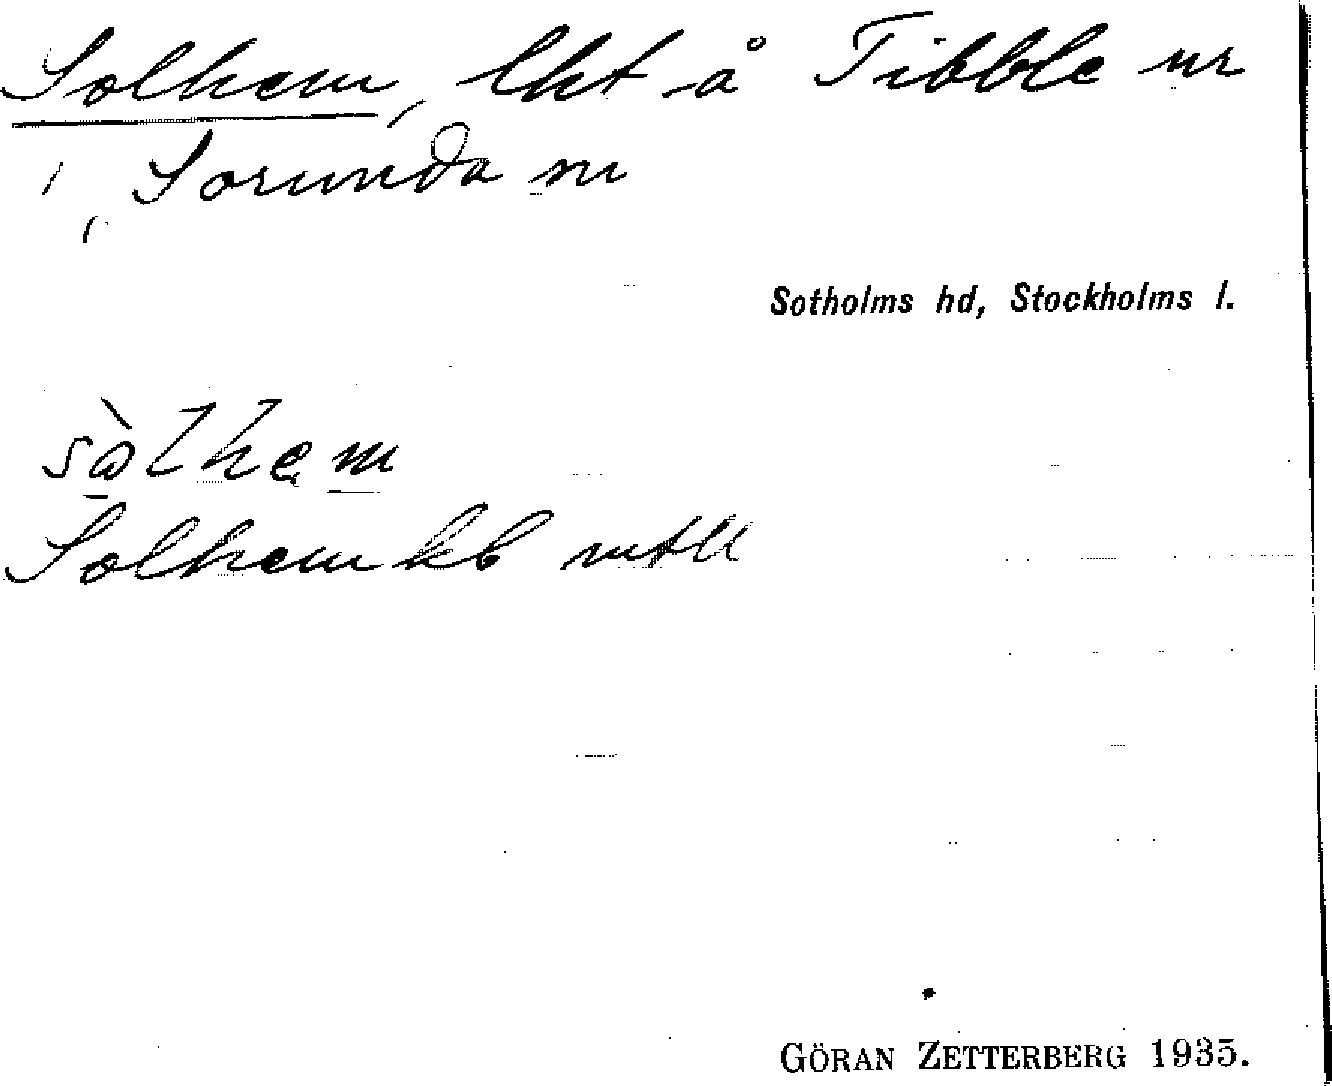 Solhem, lht å Tibble nr
1, Sorunda sn
Sotholms hd, Stockholms l.
sòlhem
Solhem kb mtll
GÖRAN ZETTERBERG 1935.